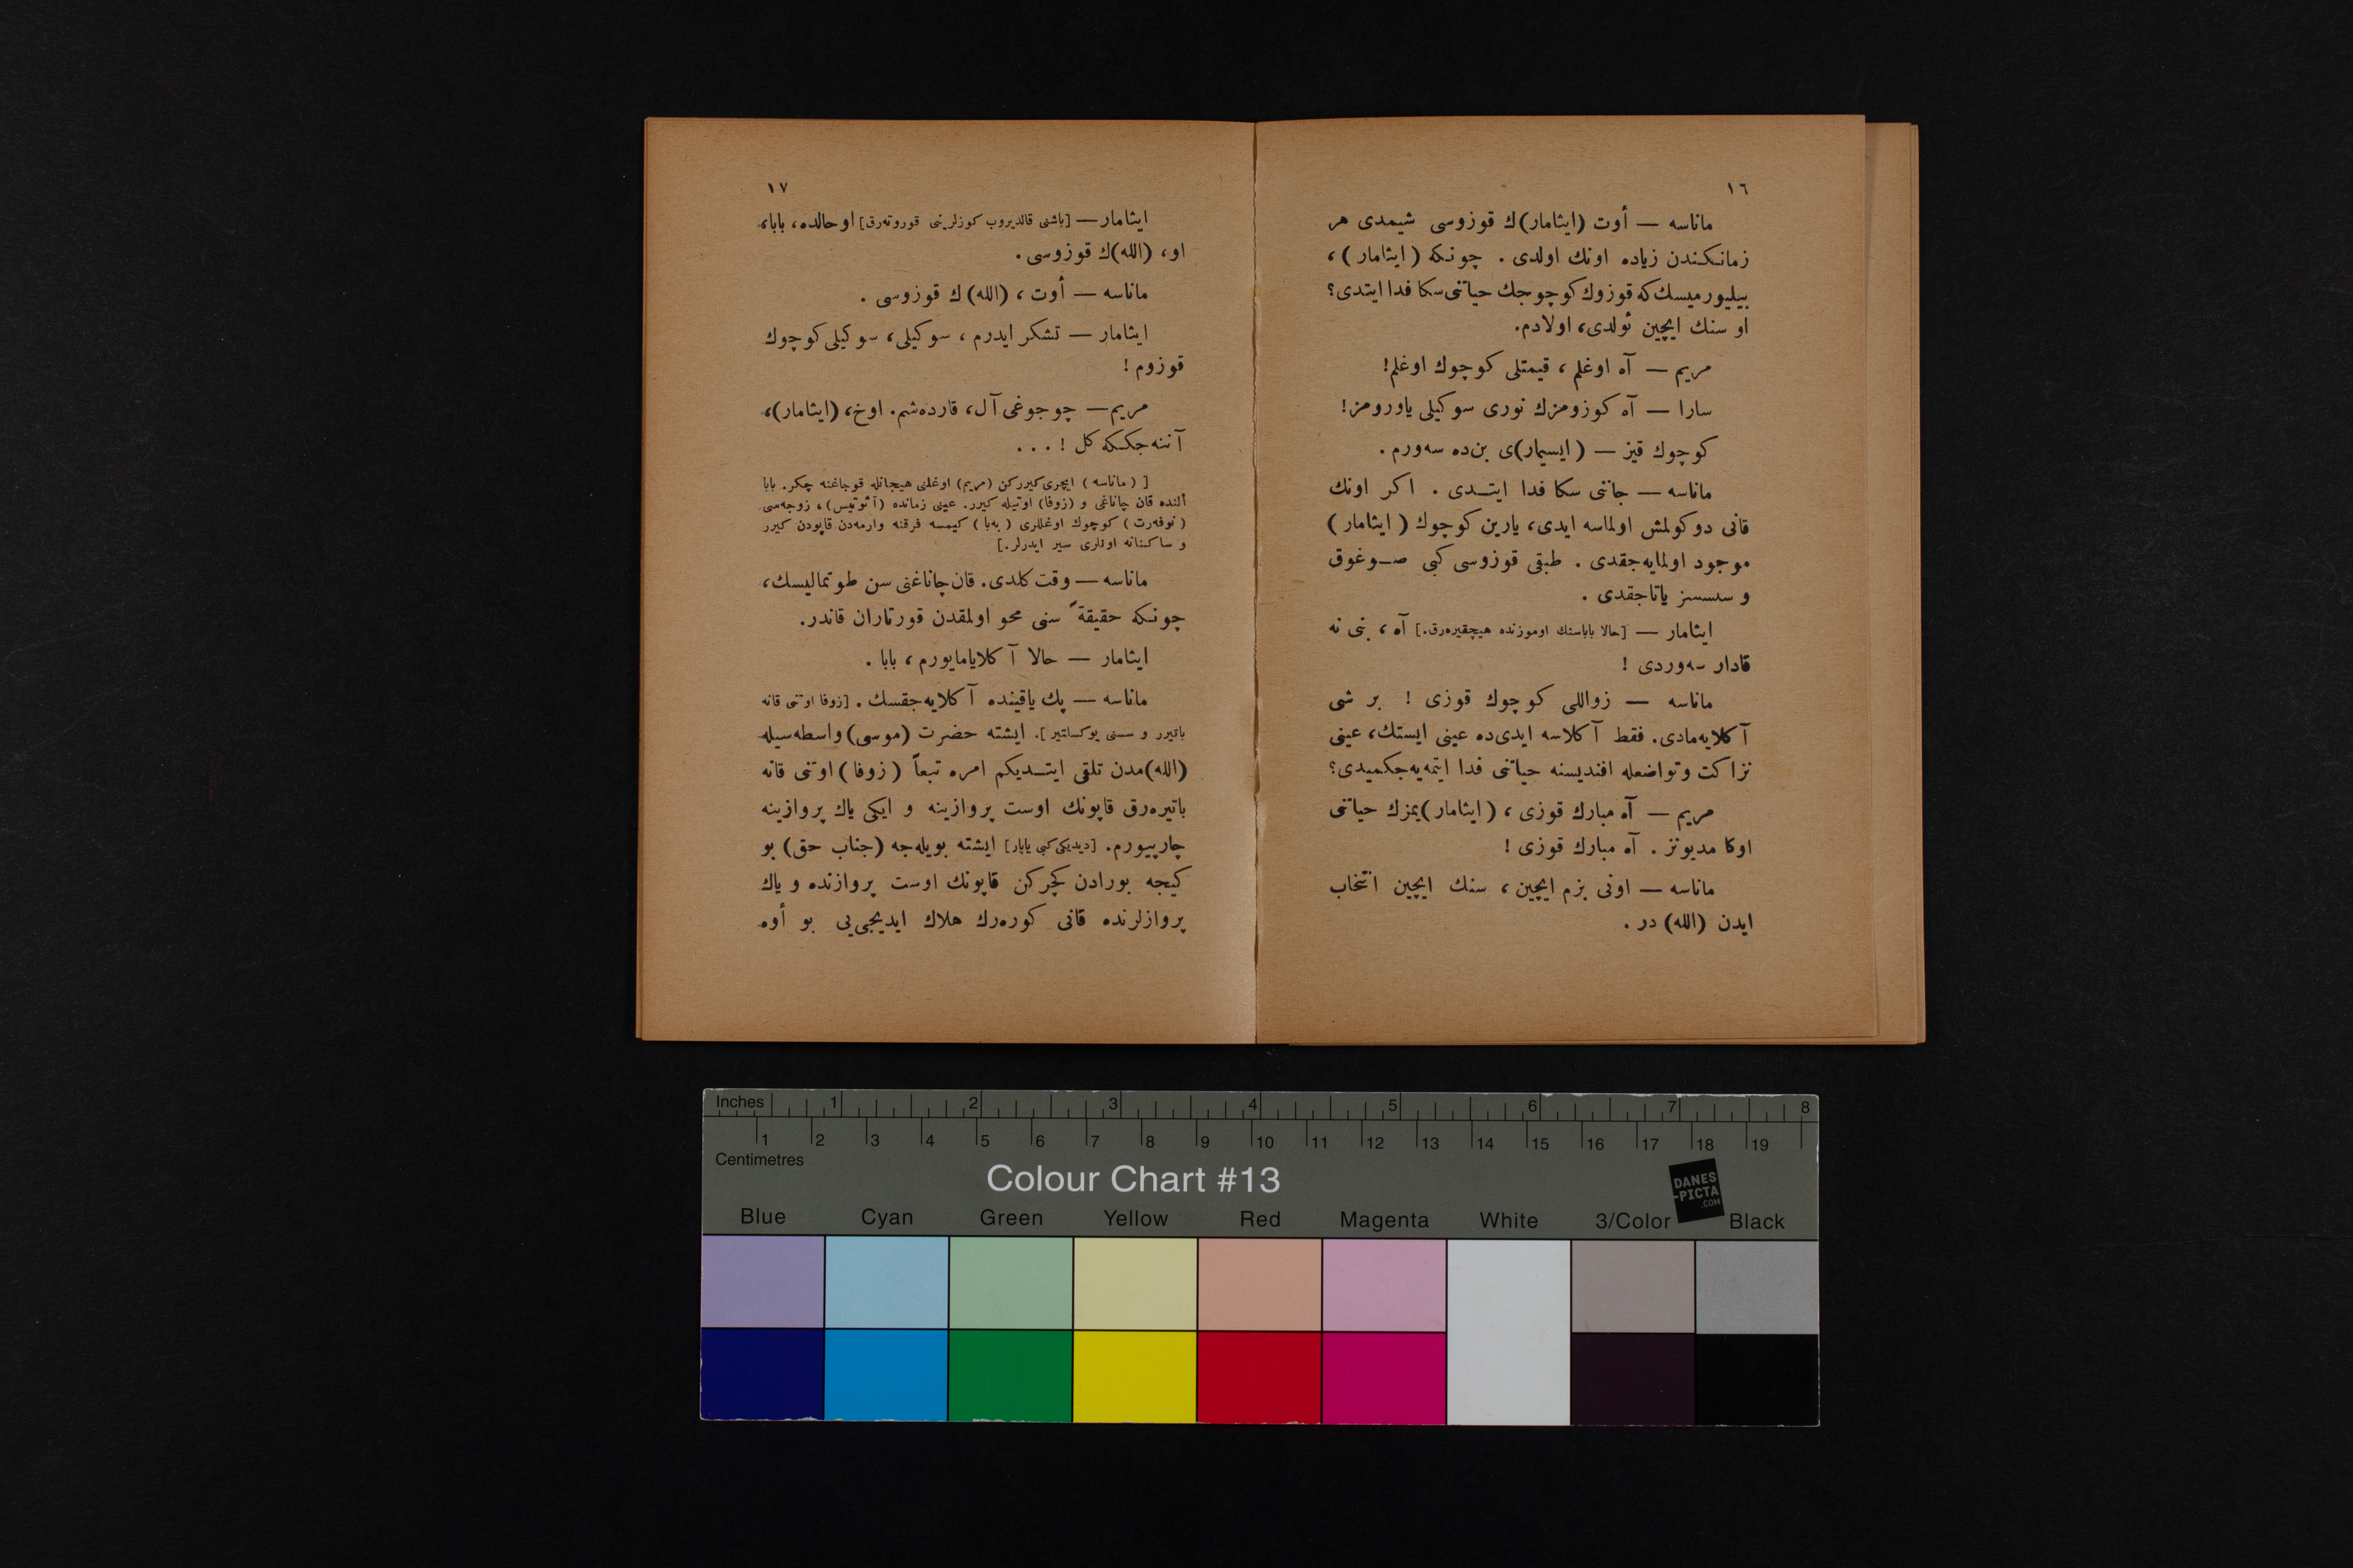 ١٦
ماناسه — أوت (ایثامار)ك قوزوسی شیمدی هر
زمانكندن زیاده اونك اولدی . چونكه (ایثامار) ،
بیلیورمیسك كه قوزوك كوچوجك حیاتنی سكا فدا ایتدی؟
او سنك ایچین ئولدی، اولادم.
مریم — آه اوغلم ، قیمتلی كوچوك اوغلم!
سارا — آه كوزومزك نوری سوكیلی یاورومز!
كوچوك قیز — (ایسیمار)ی بن‌ده سه‌ورم .
ماناسه — جاننی سكا فدا ایتدی . اكر اونك
قانی دوكولمش اولماسه ایدی، یارین كوچوك (ایثامار)
موجود اولمایه‌جقدی . طبقی قوزوسی كبی صوغوق
و سسسز یاتاجقدی .
ایثامار — [حالا باباسنك اوموزنده هیچقیره‌رق.] آه ، بنی نه
قادار سه‌وردی !
ماناسه — زواللی كوچوك قوزی ! بر شی
آكلایه‌مادی. فقط آكلاسه ایدی‌ده عینی ایستك، عینی
نزاكت وتواضعله افندیسنه حیاتنی فدا ایتمه‌یه‌جكمیدی؟
مریم — آه مبارك قوزی ، (ایثامار)یمزك حیاتنی
اوكا مدیونز . آه مبارك قوزی !
ماناسه — اونی بزم ایچین ، سنك ایچین انتخاب
ایدن (الله) در .
١٧
ایثامار — [باشنی قالدیروب كوزلرینی قوروته‌رق] اوحالده، بابا،
او، (الله)ك قوزوسی .
ماناسه — أوت ، (الله)ك قوزوسی .
ایثامار — تشكر ایدرم ، سوكیلی، سوكیلی كوچوك
قوزوم !
مریم — چوجوغی آل، قارده‌شم. اوخ، (ایثامار)،
آننه‌جككه كل ! . . .
[ (ماناسه) ایچری كیرركن (مریم) اوغلنی هیجانله قوجاغنه چكر. بابا
ألنده قان چاناغی و (زوفا) اوتیله كیرر. عینی زمانده (آئوتیس) ، زوجه‌سی
(نوفه‌رت) كوچوك اوغللری (یه‌با) كیمسه فرقنه وارمه‌دن قاپودن كیرر
و ساكنانه اونلری سیر ایدرلر.]
ماناسه — وقت كلدی. قان‌چاناغنی سن طوتمالیسك،
چونكه حقیقةً سنی محو اولمقدن قورتاران قاندر.
ایثامار — حالا آكلایامایورم ، بابا .
ماناسه — پك یاقینده آكلایه‌جقسك . [زوفا اوتنی قانه
باتیرر و سسنی یوكسلتیر]. ایشته حضرت (موسی) واسطه‌سیله
(الله)مدن تلقی ایتدیكم امره تبعاً (زوفا) اوتنی قانه
باتیره‌رق قاپونك اوست پروازینه و ایكی یاك پروازینه
چارپیورم. [دیدیكی كبی یاپار] ایشته بویله‌جه (جناب حق) بو
كیجه بورادن كچركن قاپونك اوست پروازنده و یاك
پروازلرنده قانی كوره‌رك هلاك ایدیجی‌یی بو أوه
Inches 1 2 3 4 5 6 7 8
1 2 3 4 5 6 7 8 9 10 11 12 13 14 15 16 17 18 19
Centimetres
Colour Chart #13
DANES
-PICTA
.COM
Blue Cyan Green Yellow Red Magenta White 3/Color Black